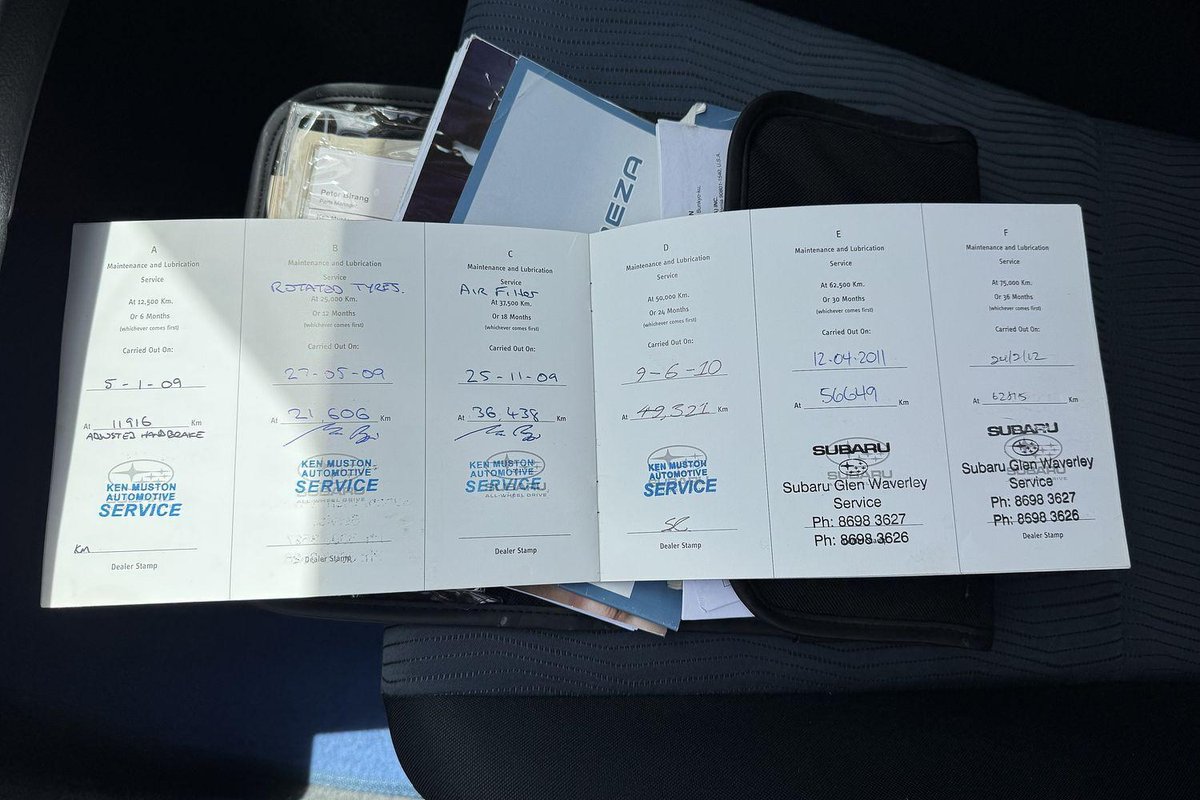 Peter Birang
Parts Manager
EZA
A
Maintenance and Lubrication
Service
At 12,500 Km.
Or 6 Months
(whichever comes first)
Carried Out On:
5-1-09
At 11916 Km
ADJUSTED HANDBRAKE
KEN MUSTON
AUTOMOTIVE
SERVICE
KM
Dealer Stamp
B
Maintenance and Lubrication
Service
ROTATED TYRES.
At 25,000 Km.
Or 12 Months
(whichever comes first)
Carried Out On:
27-05-09
At 21,606 Km
KEN MUSTON
AUTOMOTIVE
SERVICE
ALL-WHEEL DRIVE
Dealer Stamp
C
Maintenance and Lubrication
Service
AIR Filter
At 37,500 Km.
Or 18 Months
(whichever comes first)
Carried Out On:
25-11-09
At 36,438 Km
KEN MUSTON
AUTOMOTIVE
SERVICE
ALL-WHEEL DRIVE
Dealer Stamp
D
Maintenance and Lubrication
Service
At 50,000 Km.
Or 24 Months
(whichever comes first)
Carried Out On:
9-6-10
At 49,321 Km
KEN MUSTON
AUTOMOTIVE
SERVICE
Dealer Stamp
E
Maintenance and Lubrication
Service
At 62,500 Km.
Or 30 Months
(whichever comes first)
Carried Out On:
12.04.2011
At 56649 Km
SUBARU
Subaru Glen Waverley
Service
Ph: 8698 3627
Ph: 8698 3626
F
Maintenance and Lubrication
Service
At 75,000 Km.
Or 36 Months
(whichever comes first)
Carried Out On:
24/2/12
At Km
SUBARU
Subaru Glen Waverley
Service
Ph: 8698 3627
Ph: 8698 3626
Dealer Stamp